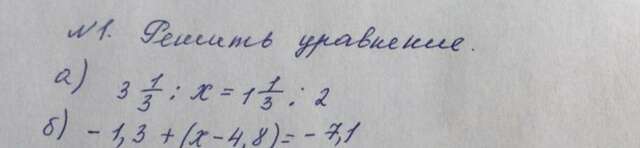 №1. Решить уравнение.
а) 3 1/3 : x = 1 1/3 : 2
б) - 1,3 + (x - 4,8) = - 7,1